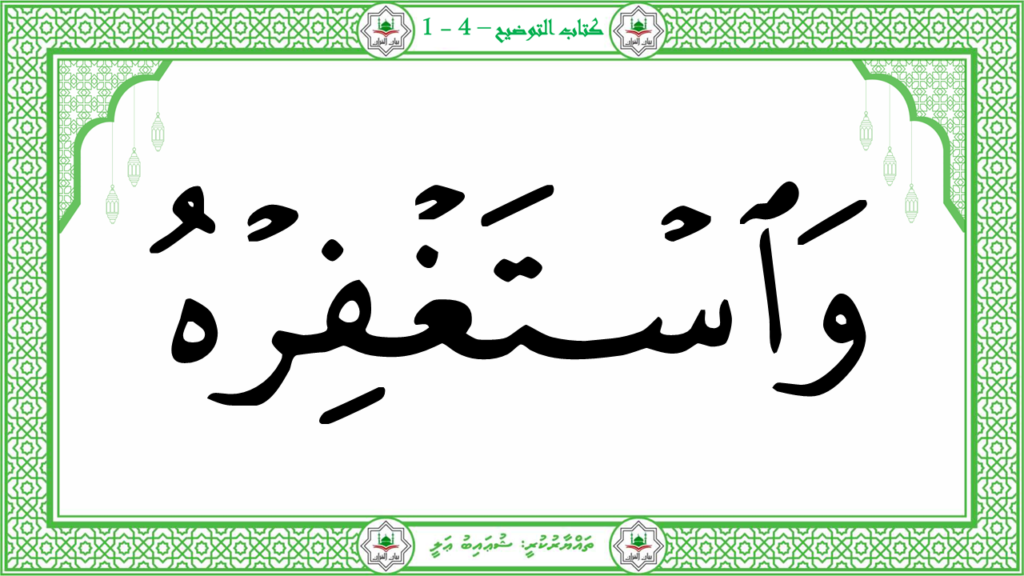 كتاب التوضيح – 4 - 1
وَٱسۡتَغۡفِرۡهُ
ތައްޔާރުކުރީ: ޝުޢައިބު ޢަލީ